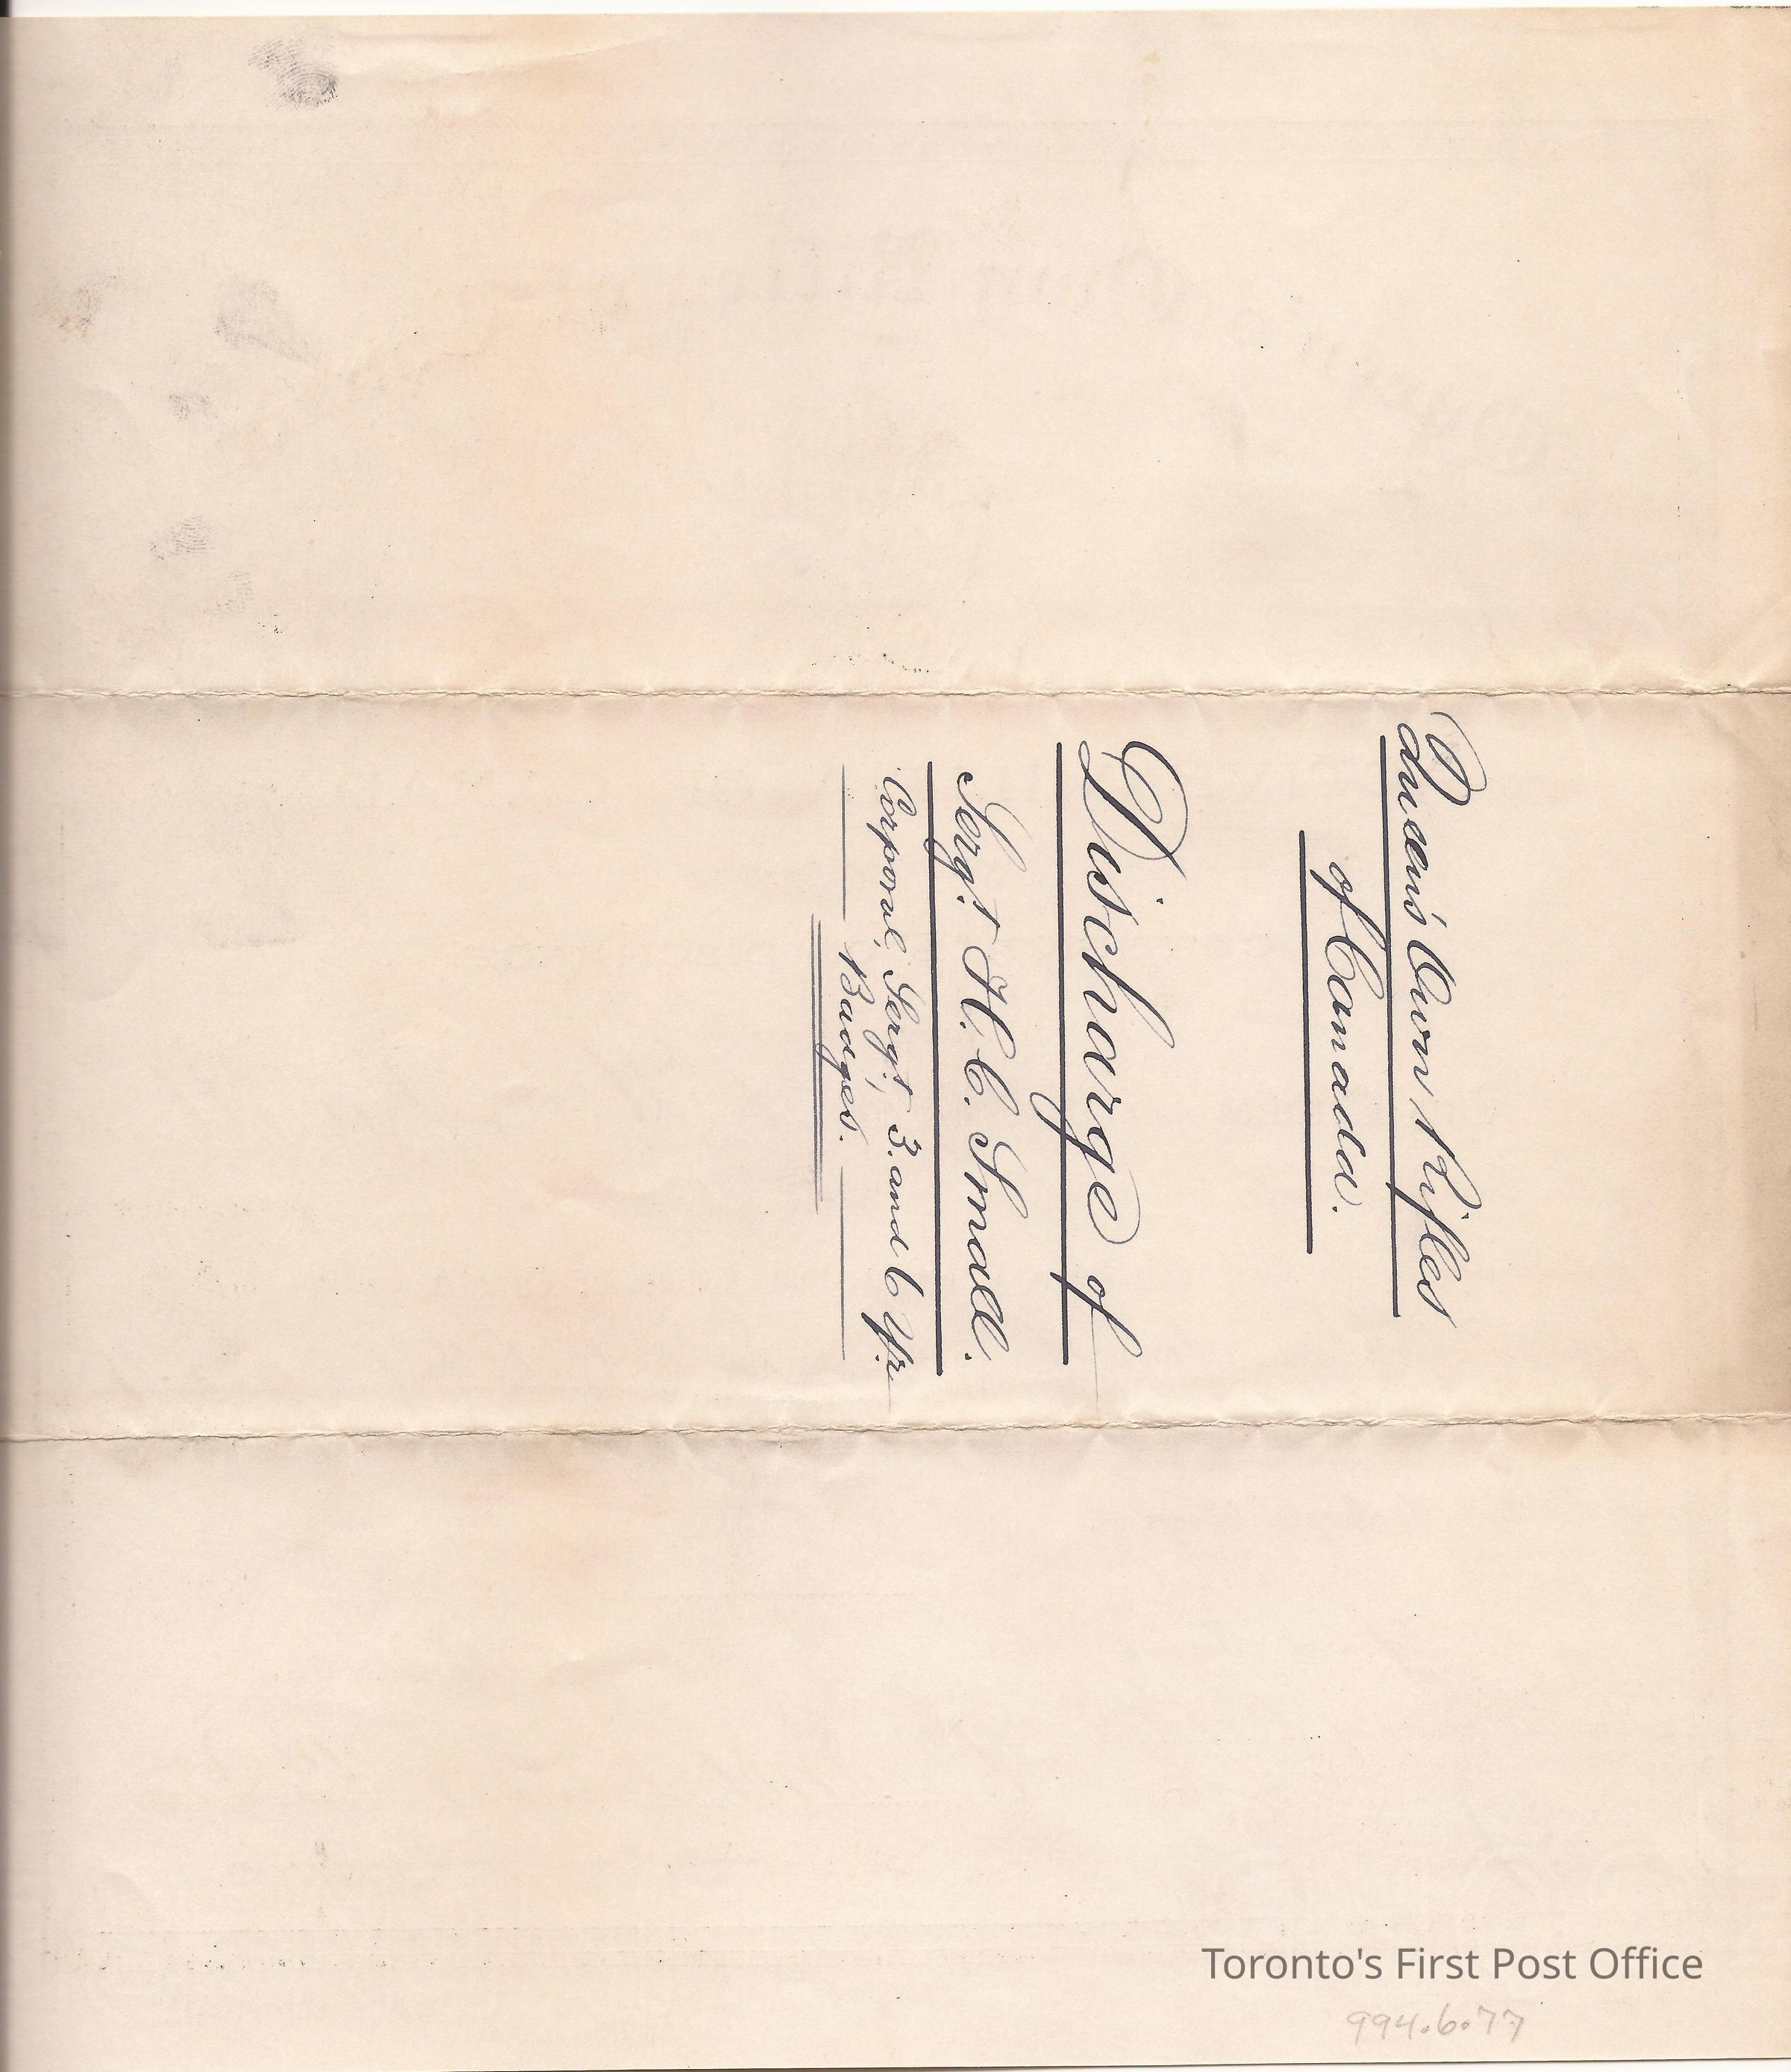 Queen's Own Rifles
of Canada.
Discharge of
Sergt H. C. Small.
Corporal, Sergt, 3 and 6 Yr.
Badges.
Toronto's First Post Office
994.6.77